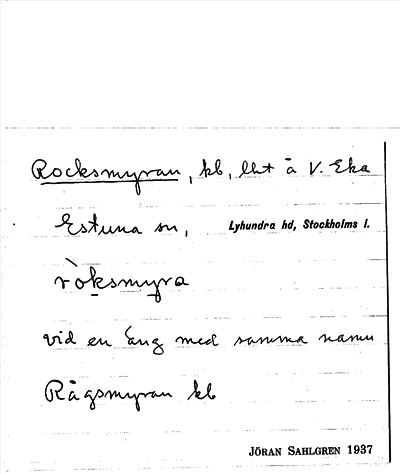 Rocksmyran, kb, lht å V. Eka
Estuna sn, Lyhundra hd, Stockholms l.
ròksmyra
vid en äng med samma namn
Rågsmyran kb
JÖRAN SAHLGREN 1937